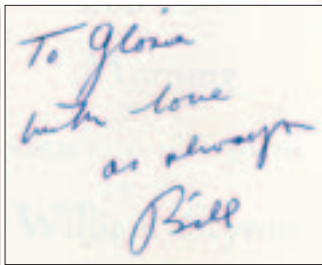 To Gloria
with love
as always
Bill